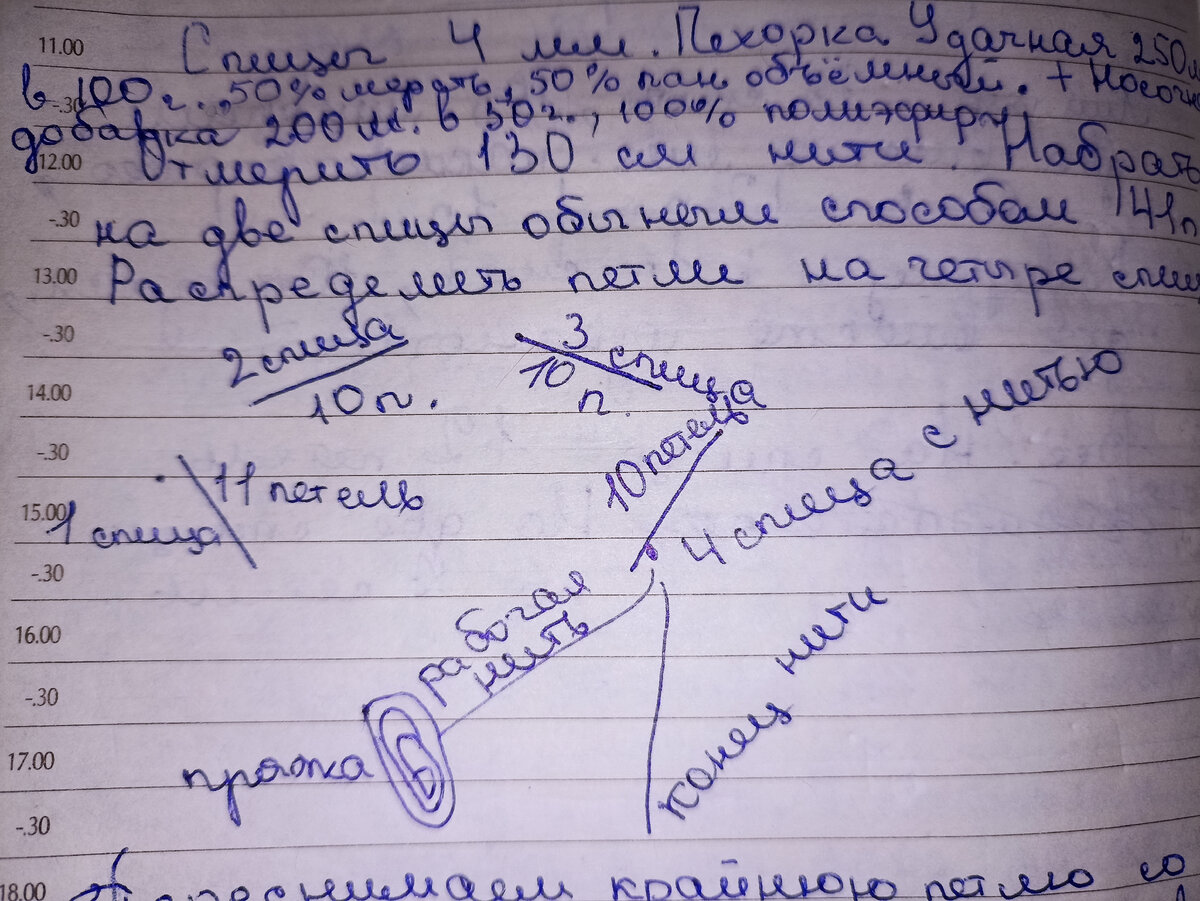 11.00 Спицы 4 мм. Пехорка Удачная 250м
-.30 в 100 г., 50% шерсть, 50% пан объёмный. + Носочная
добавка 200 м. в 50 г., 100% полиэфир
12.00 Отмерить 130 см нити. Набрать
-.30 на две спицы обычным способом 41п
13.00 Распределить петли на четыре спи
-.30
2 спица
10 п.
3 спица
10 п.
14.00
-.30
10 петель
4 спица с нитью
11 петель
15.00
1 спица
-.30
рабочая
нить
16.00
-.30
конец нити
17.00
пряжа
-.30
18.00 Переснимаем крайнюю петлю со